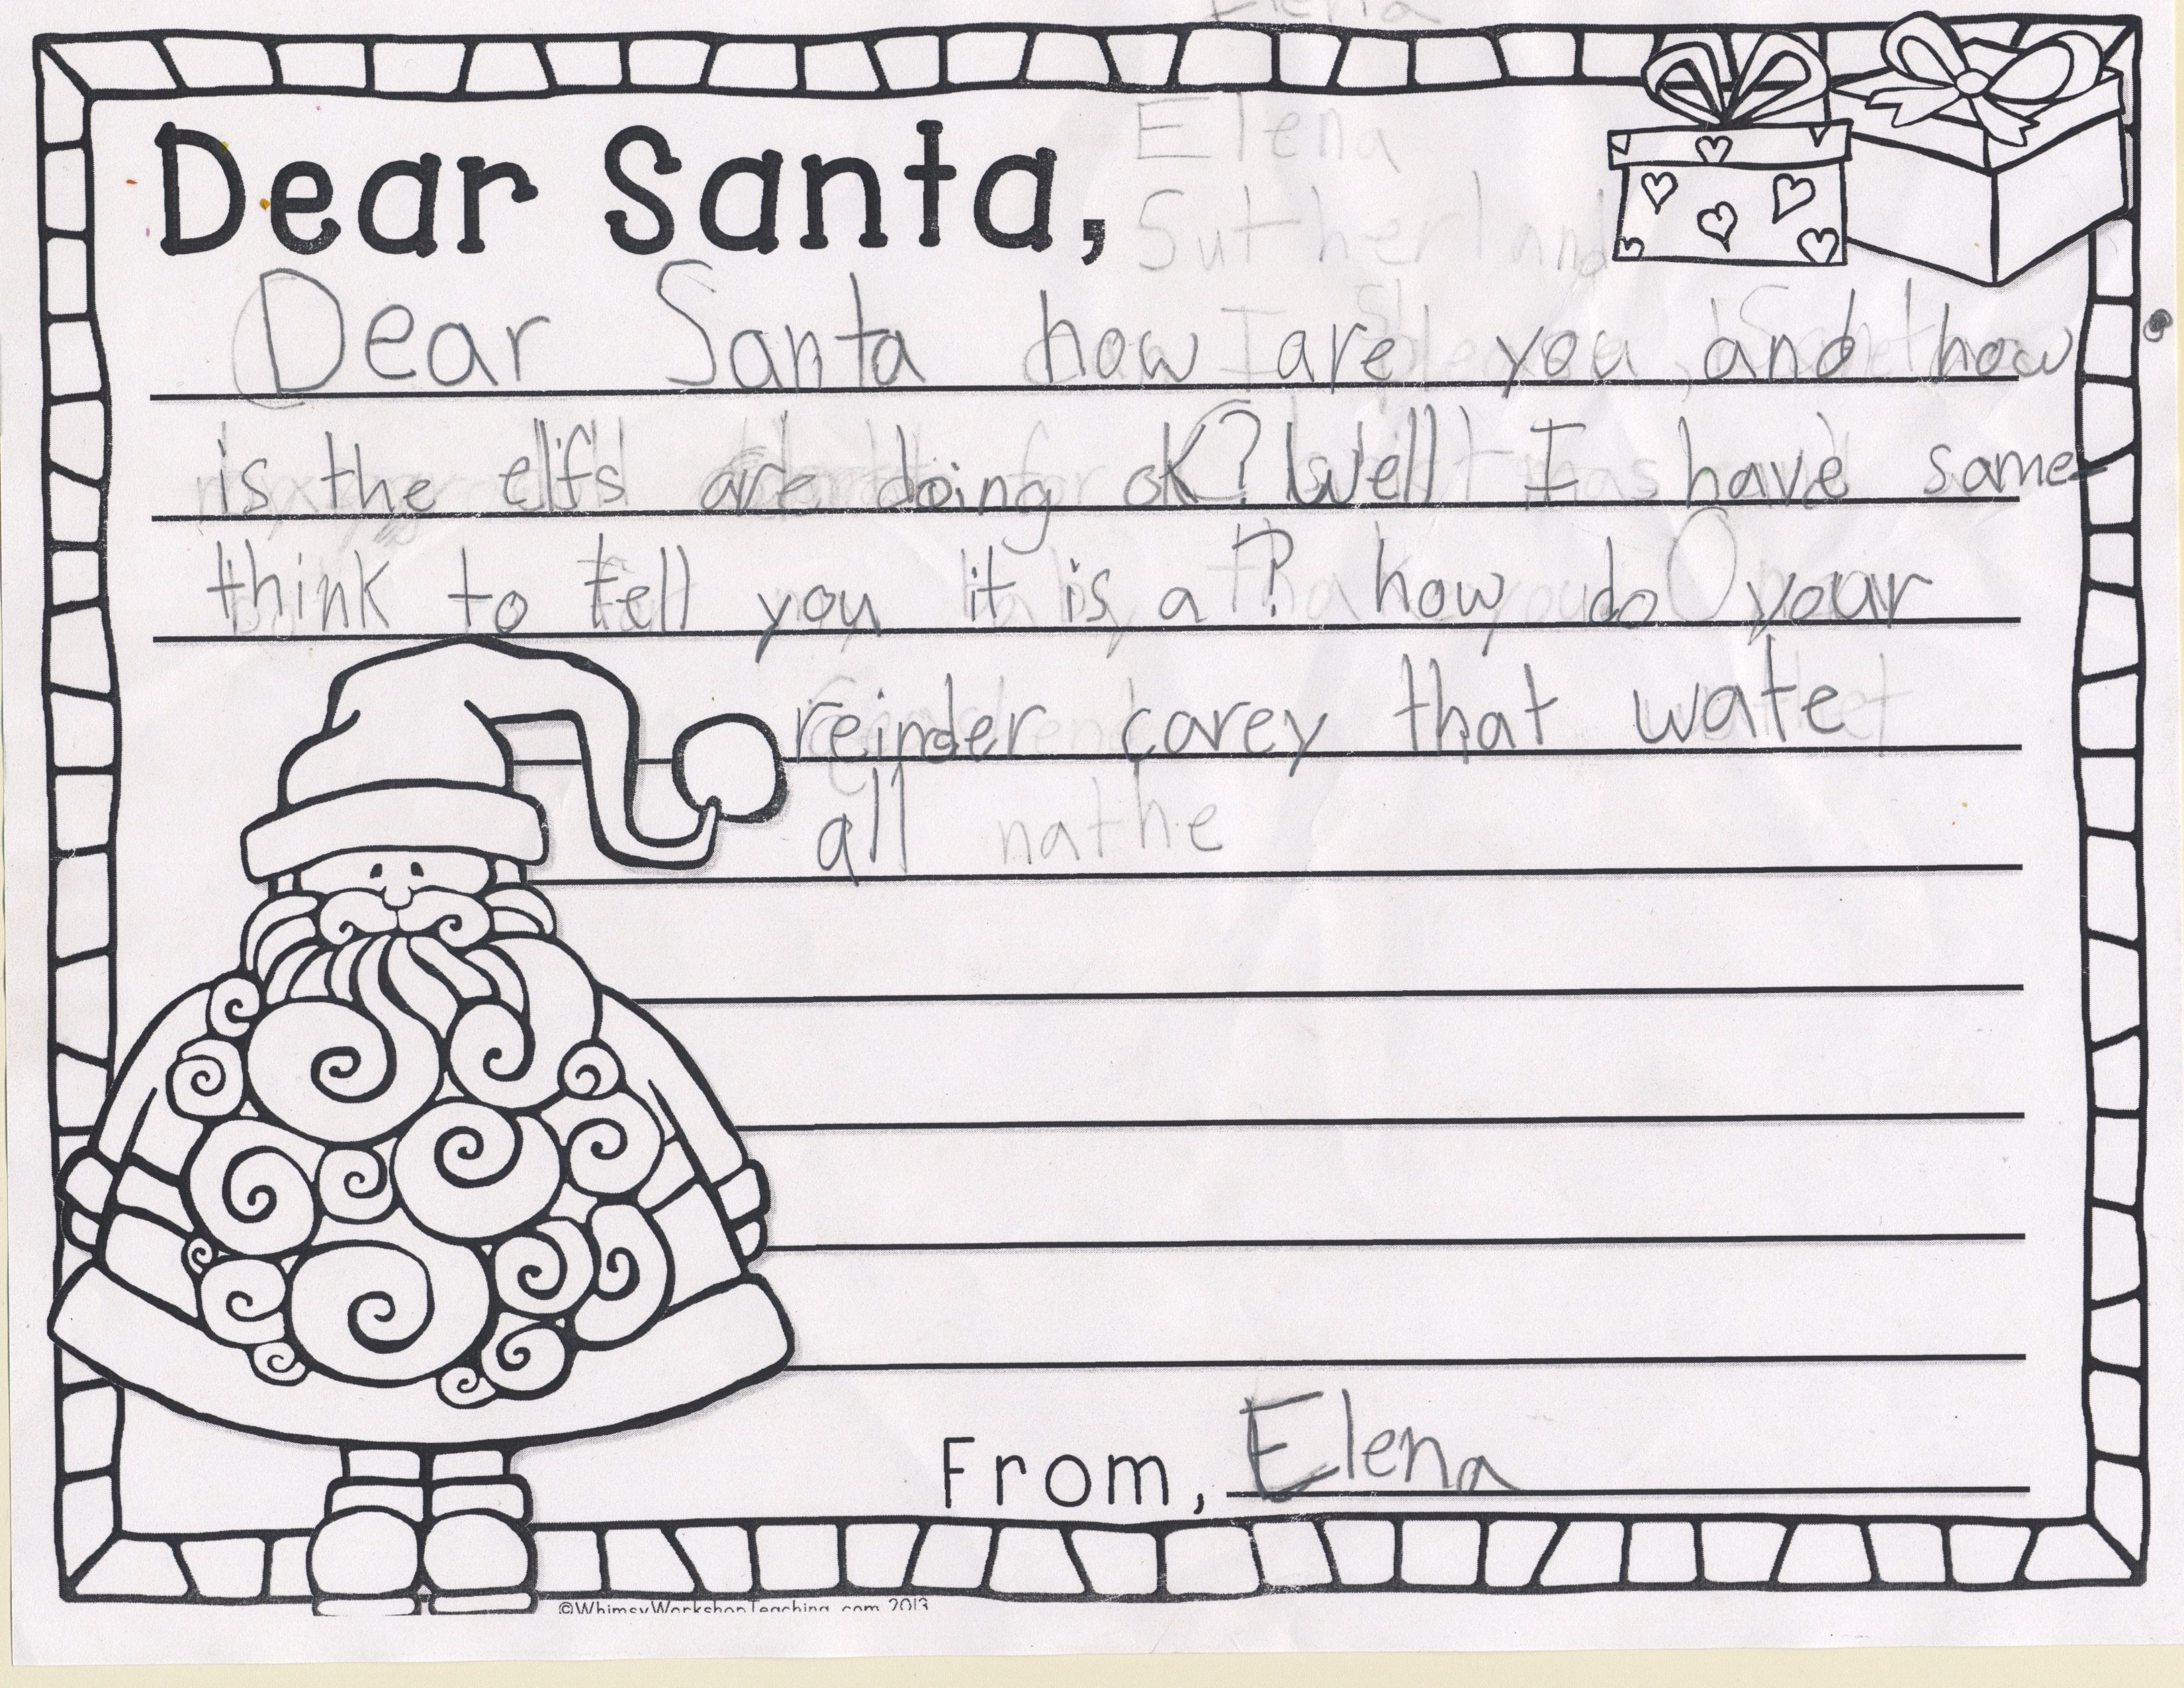 Elena
Dear Santa,
Elena
Sutherland
Dear Santa how are you and how
is the elfs are doing ok? Well I have same
think to tell you it is a ? how do your
reinder carey that wate
all nathe
From, Elena
©WhimsyWorkshopTeaching.com 2013